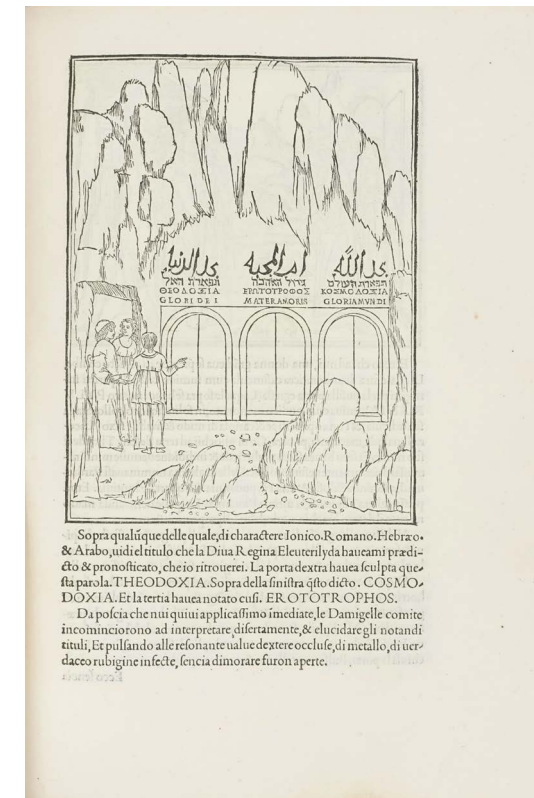 مجد الدنيا ام المحبة مجد الله
תפארת האל גידול האהבה תפארת העולם
ΘΕΟΔΟΞΙΑ ΕΡΩΤΟΤΡΟΦΟΣ ΚΟΣΜΟΔΟΞΙΑ
GLORI DEI MATER AMORIS GLORIA MVNDI
Sopra qualũque delle quale, di charactere Ionico. Romano. Hebræo.
& Arabo, uidi el titulo che la Diua Regina Eleuterilyda haueami prædi-
cto & pronosticato, che io ritrouerei. La porta dextra hauea sculpta que-
sta parola. THEODOXIA. Sopra della sinistra q̃sto dicto. COSMO-
DOXIA. Et la tertia hauea notato cusi. EROTOTROPHOS.
Da poscia che nui quiui applicassimo ĩmediate, le Damigelle comite
incominciorono ad interpretare disertamente, & elucidare gli notandi
tituli, Et pulsando alle resonante ualue dextere occluse, di metallo, di uer-
daceo rubigine infecte, sencia dimorare furon aperte.